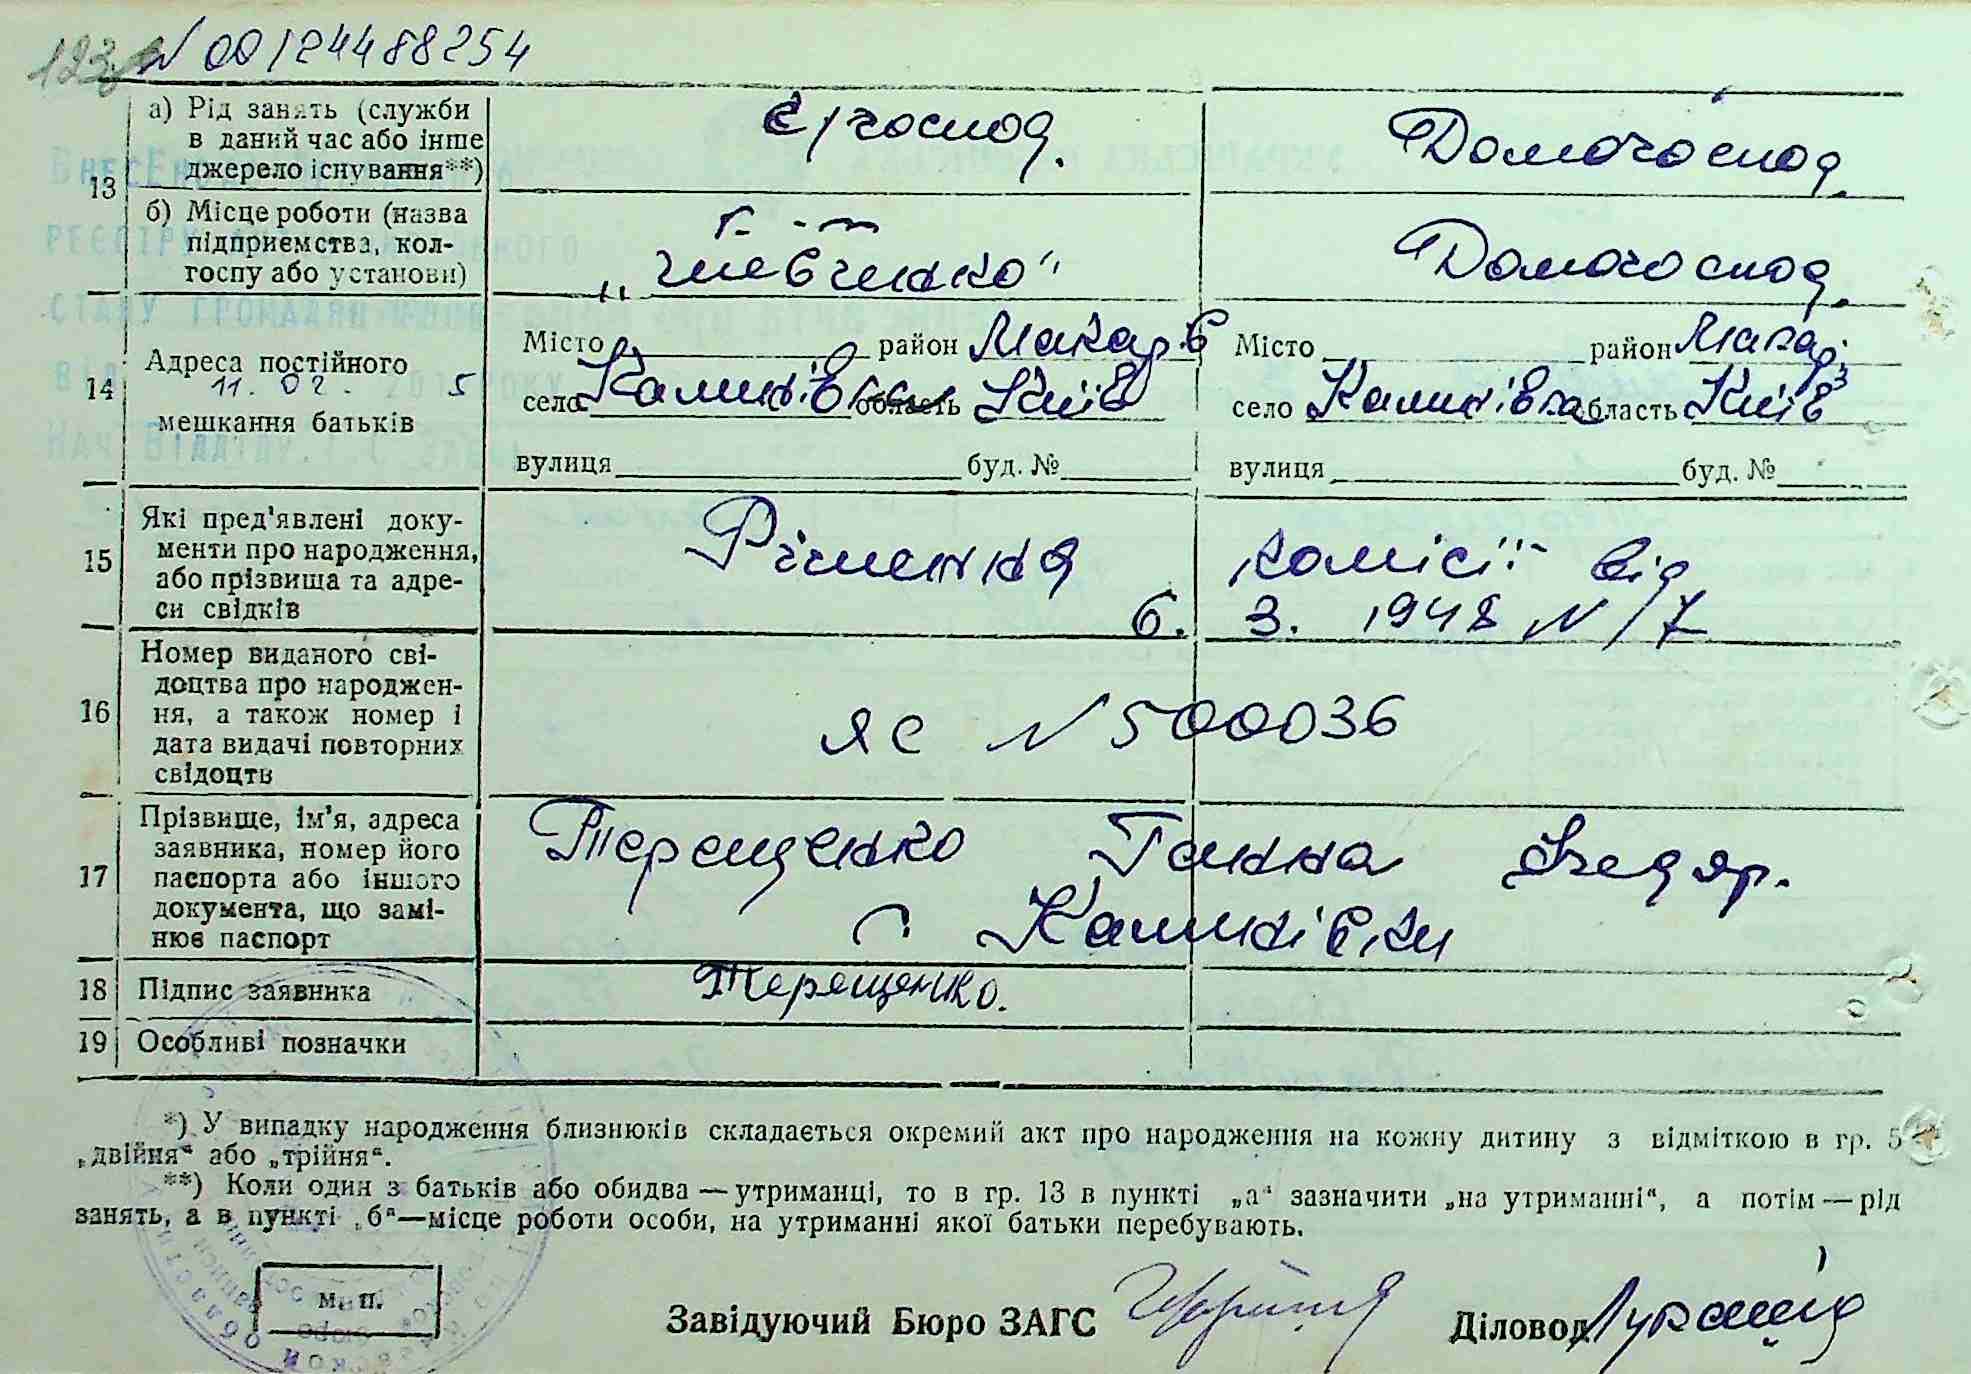 123 N 00124488254
13
а) Рід занять (служби в даний час або інше джерело існування**)
Домогоспод.
б) Місце роботи (назва підприємства, колгоспу або установи)
Домогоспод.
14
Адреса постійного мешкання батьків
11. 02. 5
Місто район Макар.
село Калинівка область Київ
вулиця буд. №
Місто район Макар.
село Калинівка область Київ
вулиця буд. №
15
Які пред'явлені документи про народження, або прізвища та адреси свідків
Рішення комісії від
6. 3. 1948 N 17
16
Номер виданого свідоцтва про народження, а також номер і дата видачі повторних свідоцтв
ЯС N 500036
17
Прізвище, ім'я, адреса заявника, номер його паспорта або іншого документа, що замінює паспорт
Терещенко Ганна
с. Калинівки
18
Підпис заявника
Терещенко.
19
Особливі позначки
*) У випадку народження близнюків складається окремий акт про народження на кожну дитину з відміткою в гр. 5
„двійня“ або „трійня“.
**) Коли один з батьків або обидва — утриманці, то в гр. 13 в пункті „а“ зазначити „на утриманні“, а потім — рід
занять, а в пункті „б“—місце роботи особи, на утриманні якої батьки перебувають.
м. п.
Завідуючий Бюро ЗАГС
Діловод